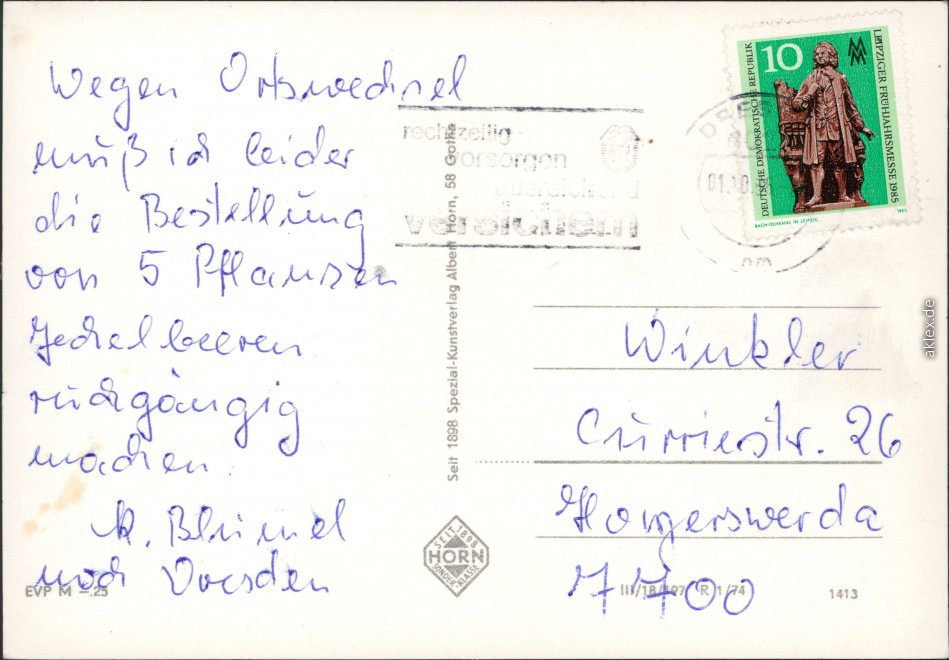 Wegen Ortswechsel
muß ich leider
die Bestellung
von 5 Pflanzen
beeren
rückgängig
machen.
Blümel
Dresden
EVP M -.25
Seit 1898 Spezial-Kunstverlag Albert Horn, 58 Gotha
SEIT 1898
HORN
SONDER KLASSE
rechtzeitig
vorsorgen
ausreichend
versichern!
DRESDEN
01.10.
10
DEUTSCHE DEMOKRATISCHE REPUBLIK
LEIPZIGER FRÜHJAHRSMESSE 1985
MM
BACH-DENKMAL IN LEIPZIG
1985
Winkler
Curiestr. 26
Hoyerswerda
7700
III/18/197 R 1/74
1413
aklex.de